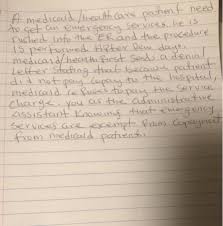 A medicaid/healthcare patient need
to get an emergency services. He is
rushed into the ER and the procedure
is performed. After few days,
medicaid/healthfirst sends a denial
letter stating that because patient
did not pay copay to the hospital,
medicaid refuses to pay the service
charge. you as the administrative
assistant knowing that emergency
services are exempt from copayment
from medicaid patients.